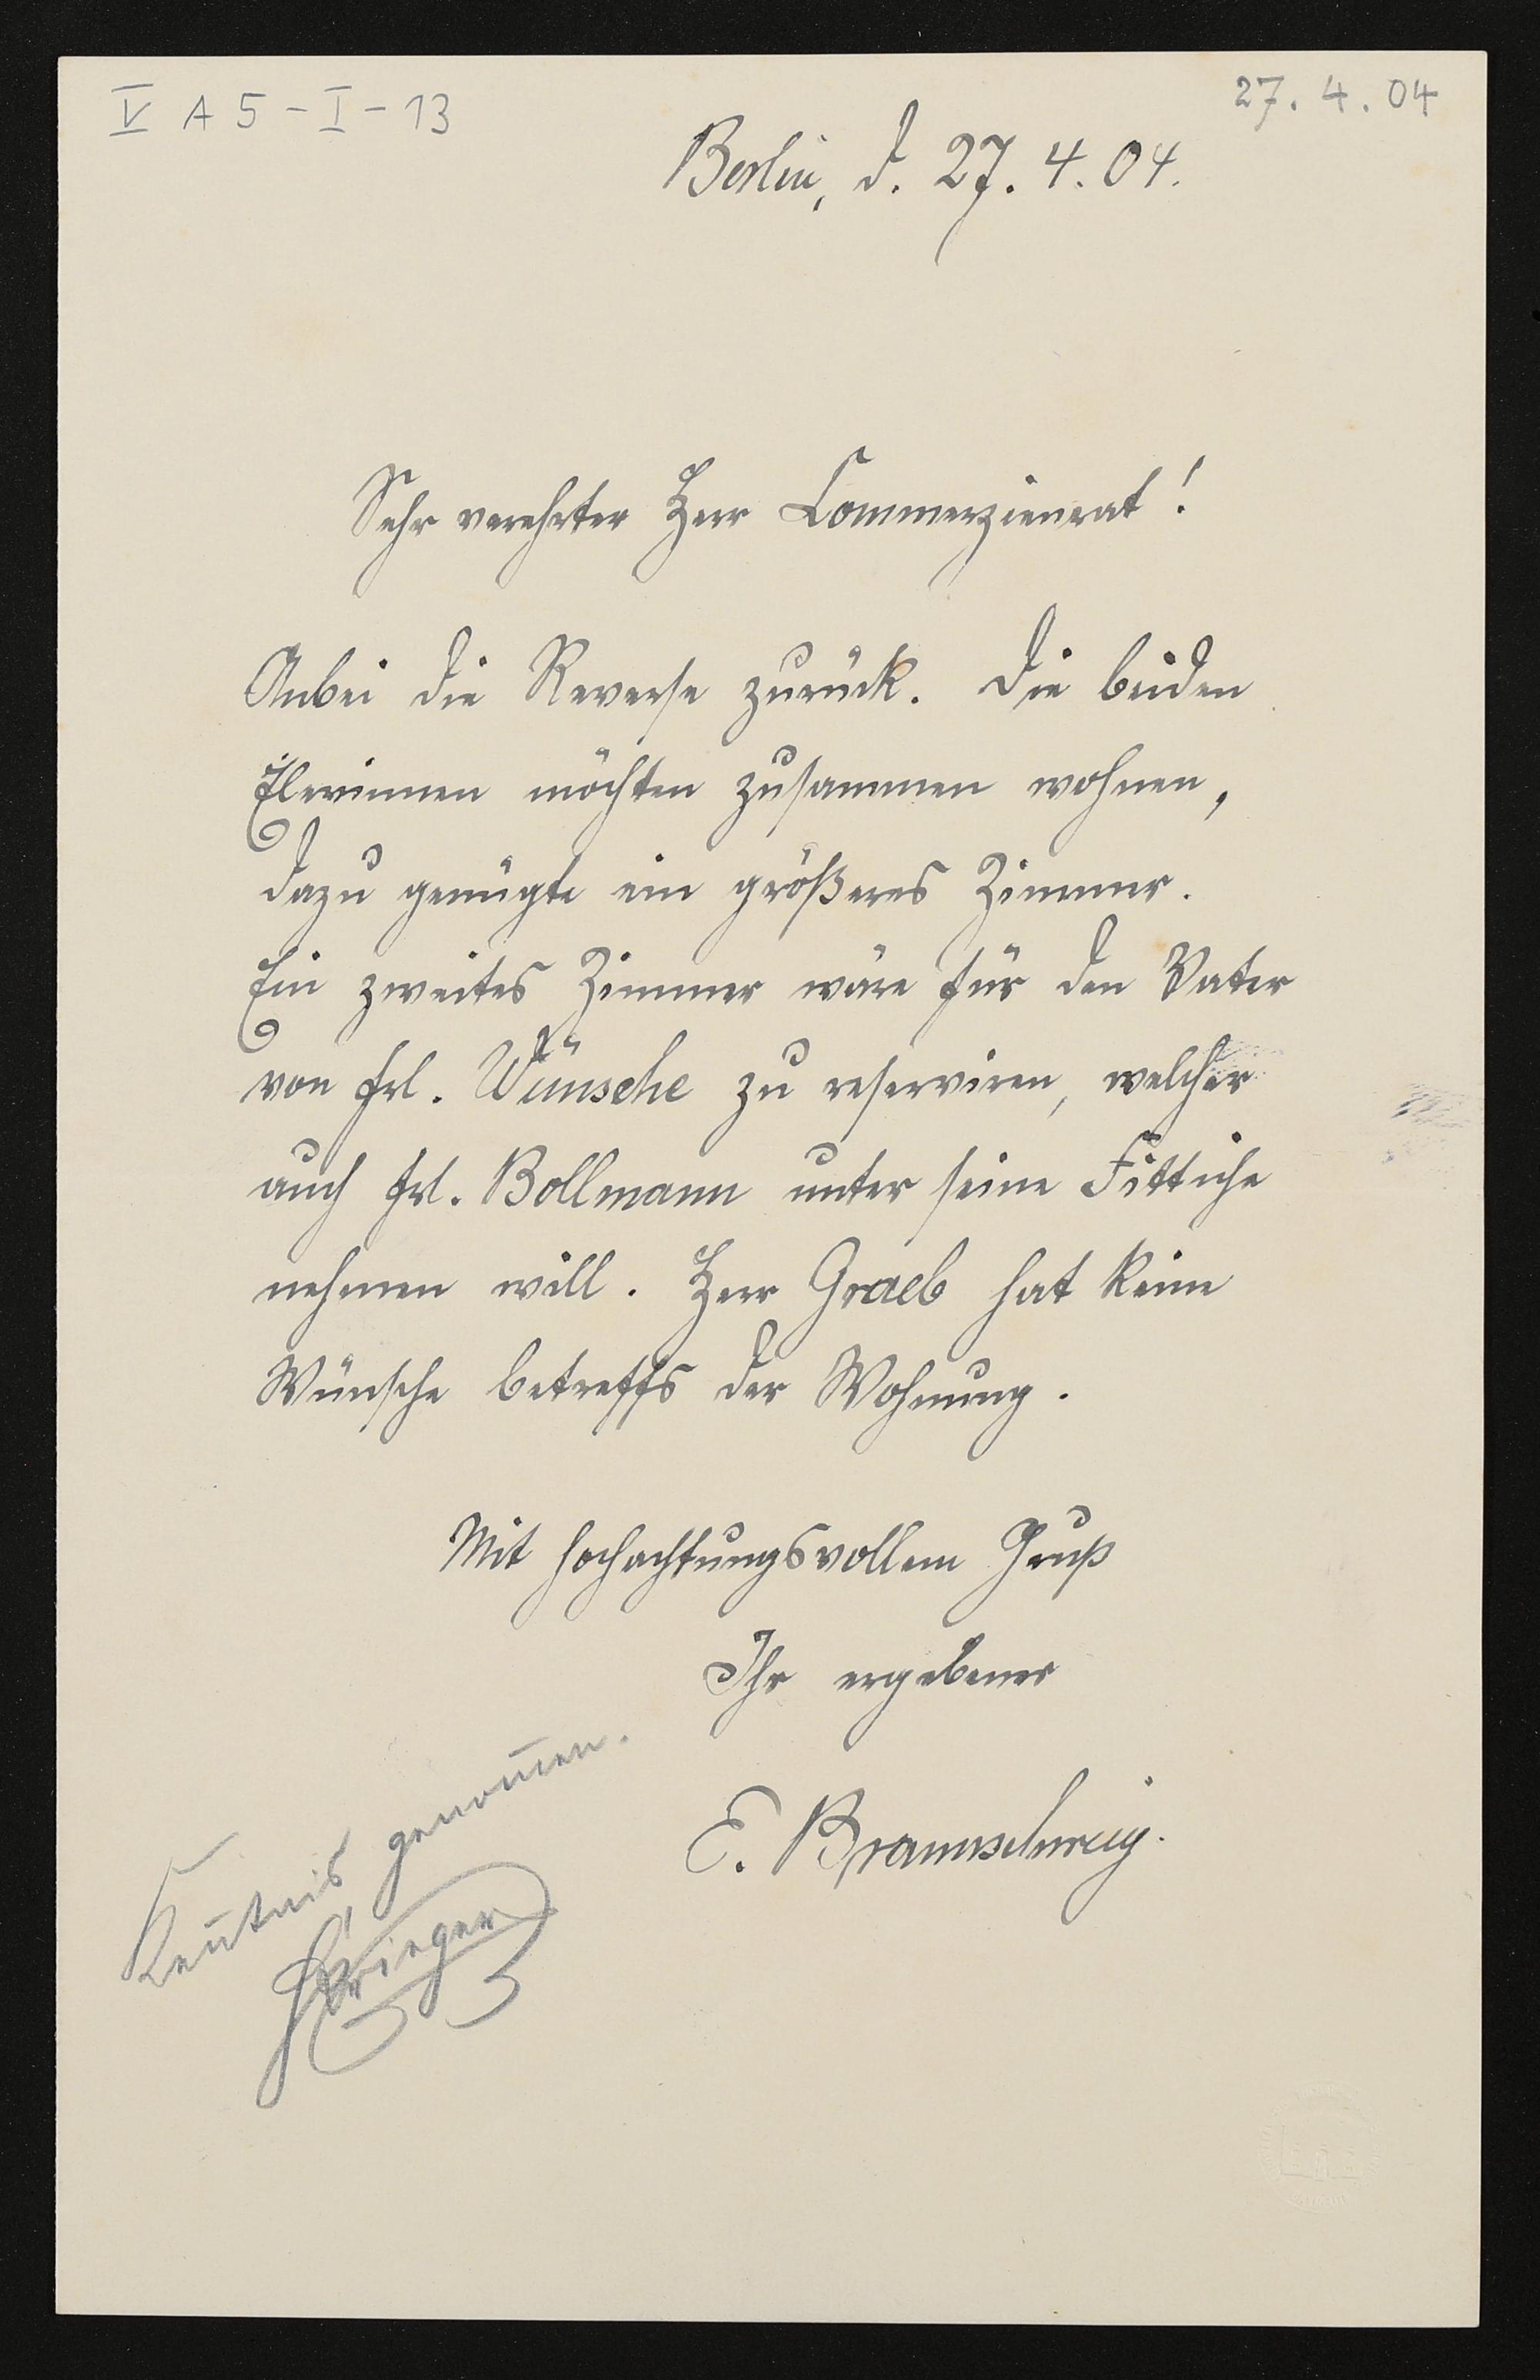 V A 5 - I - 13
27. 4. 04
Berlin, d. 27. 4. 04.
Sehr verehrter Herr Commerzienrat!
Anbei die Reverse zurück. Die beiden
Elevinnen möchten zusammen wohnen,
dazu genügte ein größeres Zimmer.
Ein zweites Zimmer wäre für den Vater
von Frl. Wünsche zu reserviren, welcher
auch Frl. Bollmann unter seine Fittiche
nehmen will. Herr Graeb hat keine
Wünsche betreffs der Wohnung.
Mit hochachtungsvollem Gruß
Ihr ergebener
E. Braunschweig.
Ken̄tnis genom̄en.